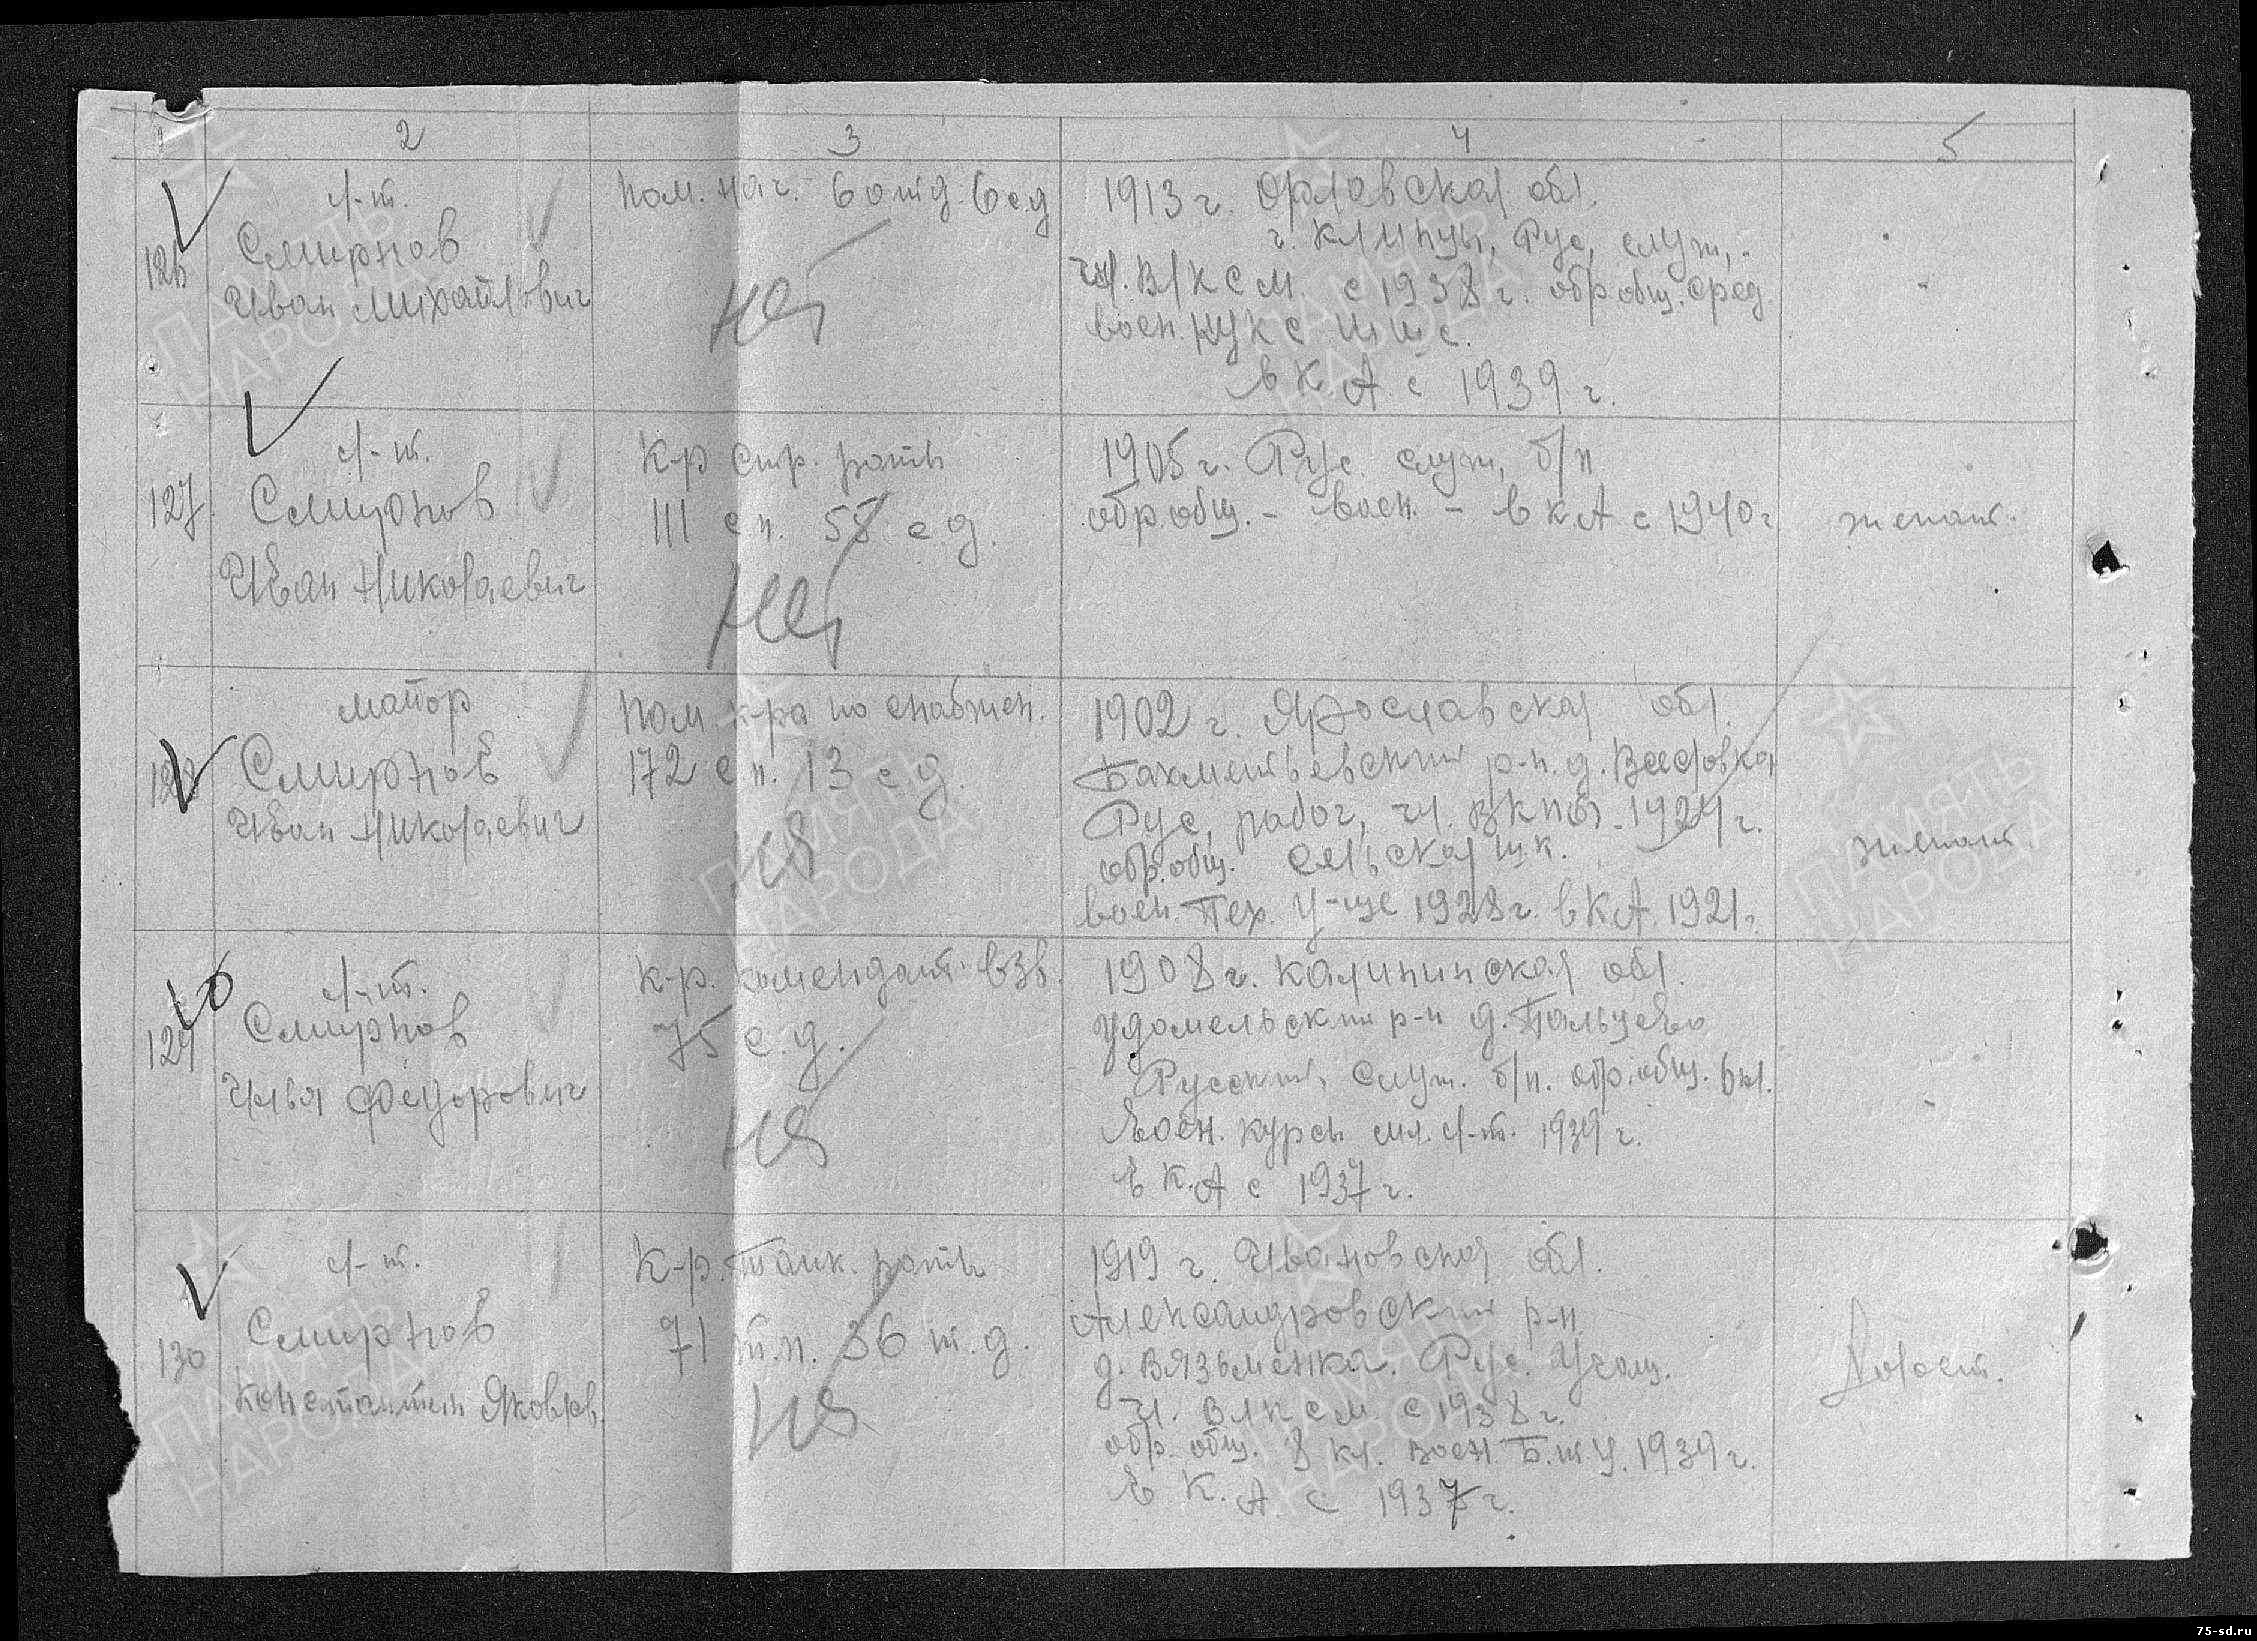 1 2 3 4 5
126
л-т.
Смирнов
Иван Михайлович
пом. нач. 6 отд. 6 сд
1913 г. Орловская обл.
г. Клинцы, Рус, служ,
чл. ВЛКСМ с 1938 г. обр. общ. сред
воен.
в К.А. с 1939 г.
127
л-т.
Смирнов
Иван Николаевич
К-р стр. роты
111 сп. 58 сд.
1905 г. Рус. служ, б/п
обр. общ. - воен. - в КА с 1940 г
женат.
128
майор
Смирнов
Иван Николаевич
Пом. к-ра по снабжен.
172 сп. 13 сд.
1902 г. Ярославская обл.
р-н. д.
Рус, рабоч, чл. ВКПб. 1924 г.
обр. общ. сельская шк.
воен. Пех. У-ще 1928 г. в КА. 1921 г.
женат
129
л-т.
Смирнов
Илья Федорович
К-р. комендант. взв.
75 с.д.
1908 г. Калининская обл.
Удомельский р-н д. Пальцево
Русский, служ. б/п. обр. общ. 6 кл.
Воен. курсы мл. л-т. 1939 г.
в К.А с 1937 г.
130
л-т.
Смирнов
Константин Яковлев.
К-р. танк. роты
71 т.п. 36 т.д.
1919 г. Ивановская обл.
Александровский р-н
д. Вязьменка. Рус. Учащ.
чл. ВЛКСМ с 1938 г.
обр. общ. 8 кл. воен. Б.Т.У. 1939 г.
в К.А с 1937 г.
холост.
ПАМЯТЬ
НАРОДА
75-sd.ru